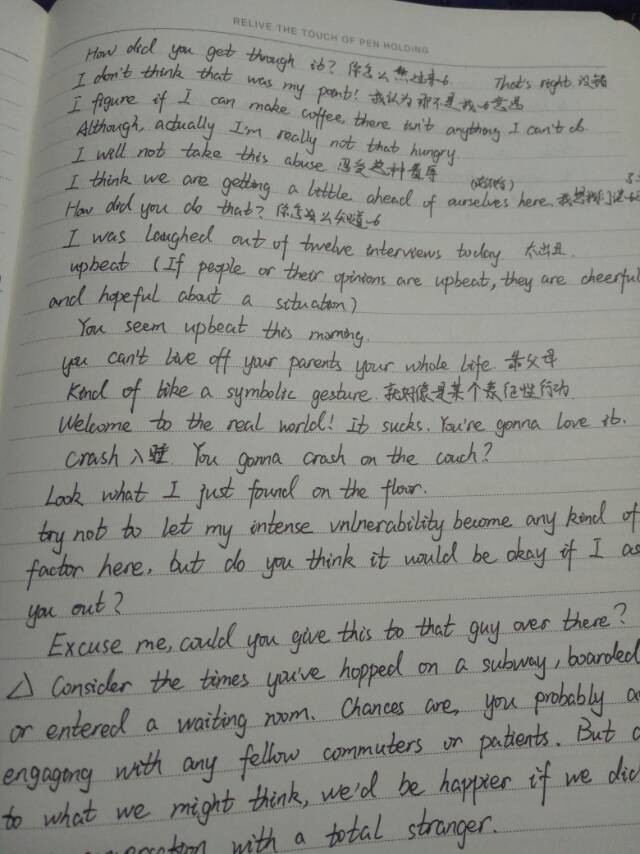 RELIVE THE TOUCH OF PEN HOLDING
How did you get through it? 你怎么熬过来的 That's right 没错
I don't think that was my point! 我认为那不是我的意思
I figure if I can make coffee, there isn't anything I can't do.
Although, actually I'm really not that hungry
I will not take this abuse 忍受这种羞辱
I think we are getting a little ahead of ourselves here 我是我们
How did you do that? 你怎么知道的
I was laughed out of twelve interviews today 太出丑
upbeat (If people or their opinions are upbeat, they are cheerful
and hopeful about a situation)
You seem upbeat this morning.
you can't live off your parents your whole life 靠父母
Kind of like a symbolic gesture 就好像是某个象征性行动
Welcome to the real world! It sucks. You're gonna love it.
crash 入睡 You gonna crash on the couch?
Look what I just found on the floor.
try not to let my intense vnlnerability become any kind of
factor here, but do you think it would be okay if I as
you out?
Excuse me, could you give this to that guy over there?
△ Consider the times you've hopped on a subway, boarded
or entered a waiting room. Chances are, you probably a
engaging with any fellow commuters or patients. But c
to what we might think, we'd be happier if we did
with a total stranger.